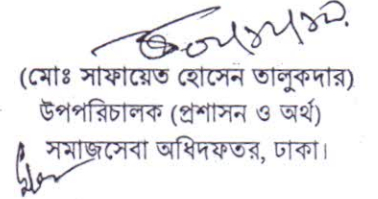 (মোঃ সাফায়েত হোসেন তালুকদার)
উপপরিচালক (প্রশাসন ও অর্থ)
সমাজসেবা অধিদফতর, ঢাকা।